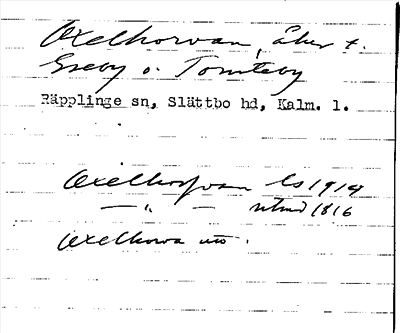 Axelhorvan, åker t.
Greby o. Tomteby
Räpplinge sn, Slättbo hd, Kalm. l.
Axelhorfvan ls 1914
— " — 1816
Axelhorva